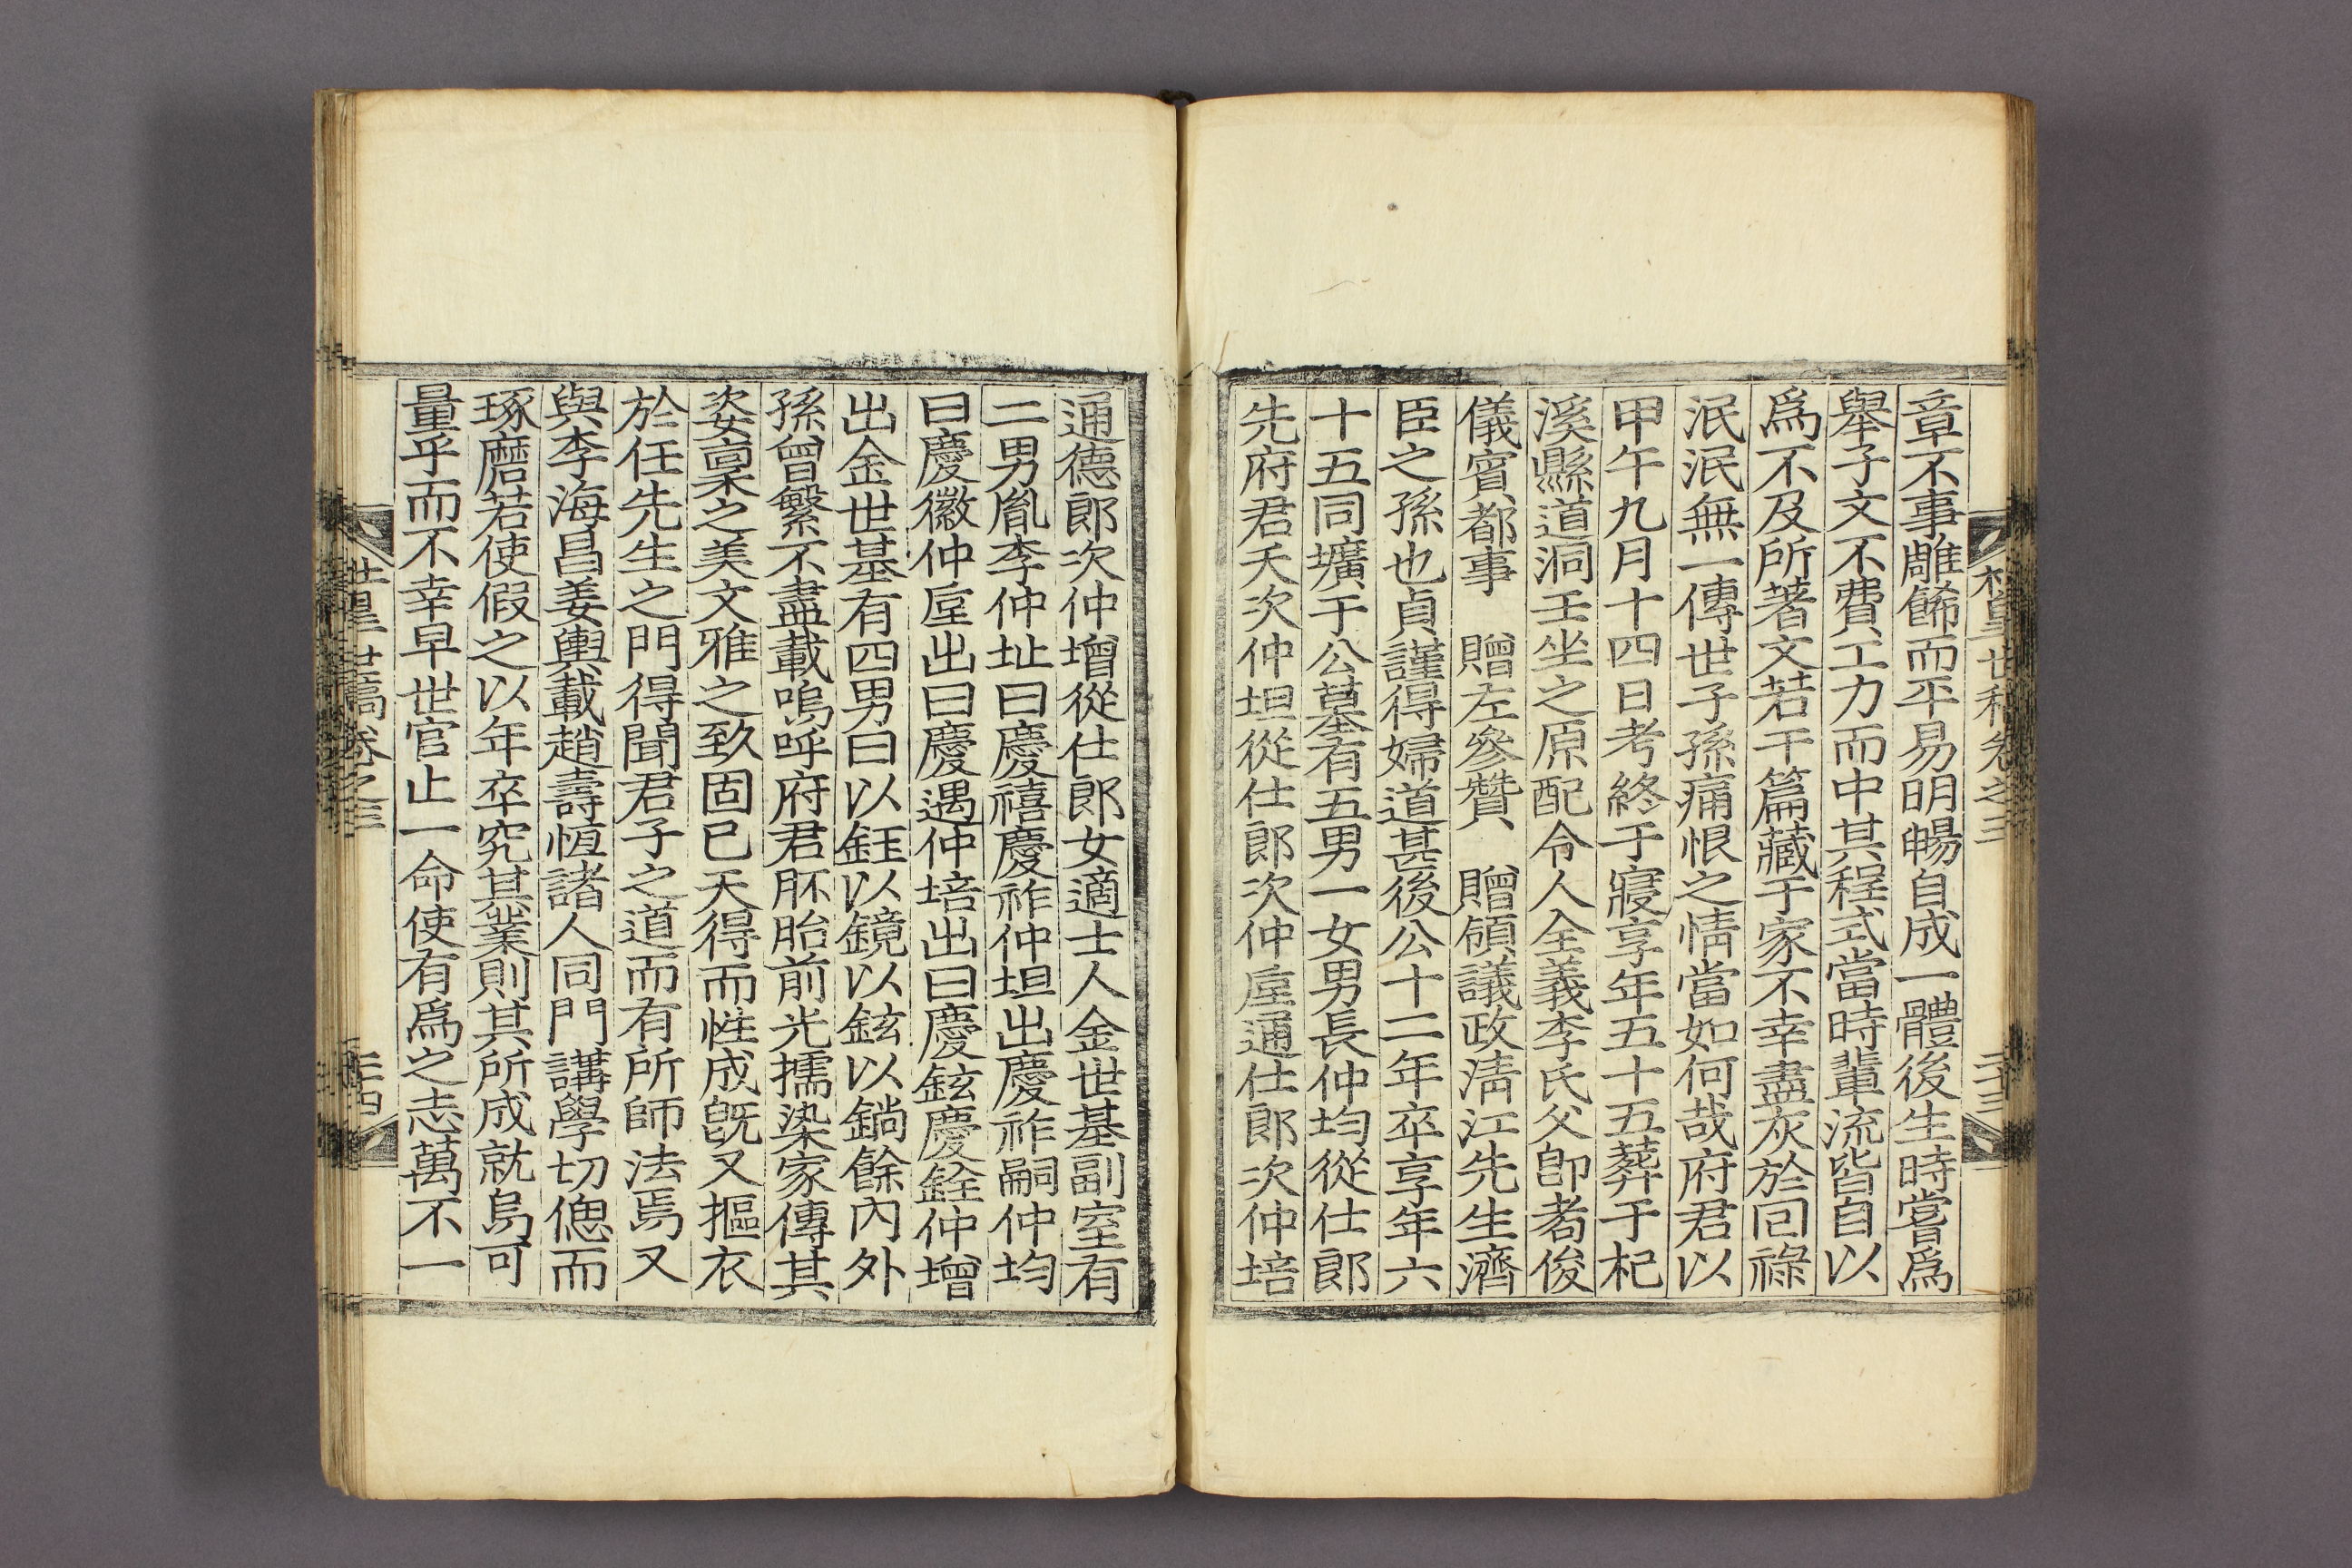 章不事雕餙而平易明暢自成一體後生時嘗爲
舉子文不費工力而中其程式當時輩流皆自以
爲不及所著文若干篇藏于家不幸盡灰於回祿
泯泯無一傳世子孫痛恨之情當如何哉府君以
甲午九月十四日考終于寢享年五十五葬于杞
溪縣道洞壬坐之原配令人全義李氏父卽耉俊
儀賓都事　贈左參贊　贈領議政淸江先生濟
臣之孫也貞謹得婦道甚後公十二年卒享年六
十五同壙于公墓有五男一女男長仲均從仕郞
先府君夭次仲坦從仕郞次仲垕通仕郞次仲培
通德郞次仲增從仕郞女適士人金世基副室有
二男胤李仲址曰慶禧慶祚仲坦出慶祚嗣仲均
曰慶徽仲垕出曰慶遇仲培出曰慶鉉慶銓仲增
出金世基有四男曰以鈺以鏡以鉉以鏛餘內外
孫曾繁不盡載嗚呼府君胚胎前光擩染家傳其
姿稟之美文雅之致固已天得而性成旣又摳衣
於任先生之門得聞君子之道而有所師法焉又
與李海昌姜輿載趙壽恆諸人同門講學切偲而
琢磨若使假之以年卒究其業則其所成就烏可
量乎而不幸早世官止一命使有爲之志萬不一
世稿卷之三